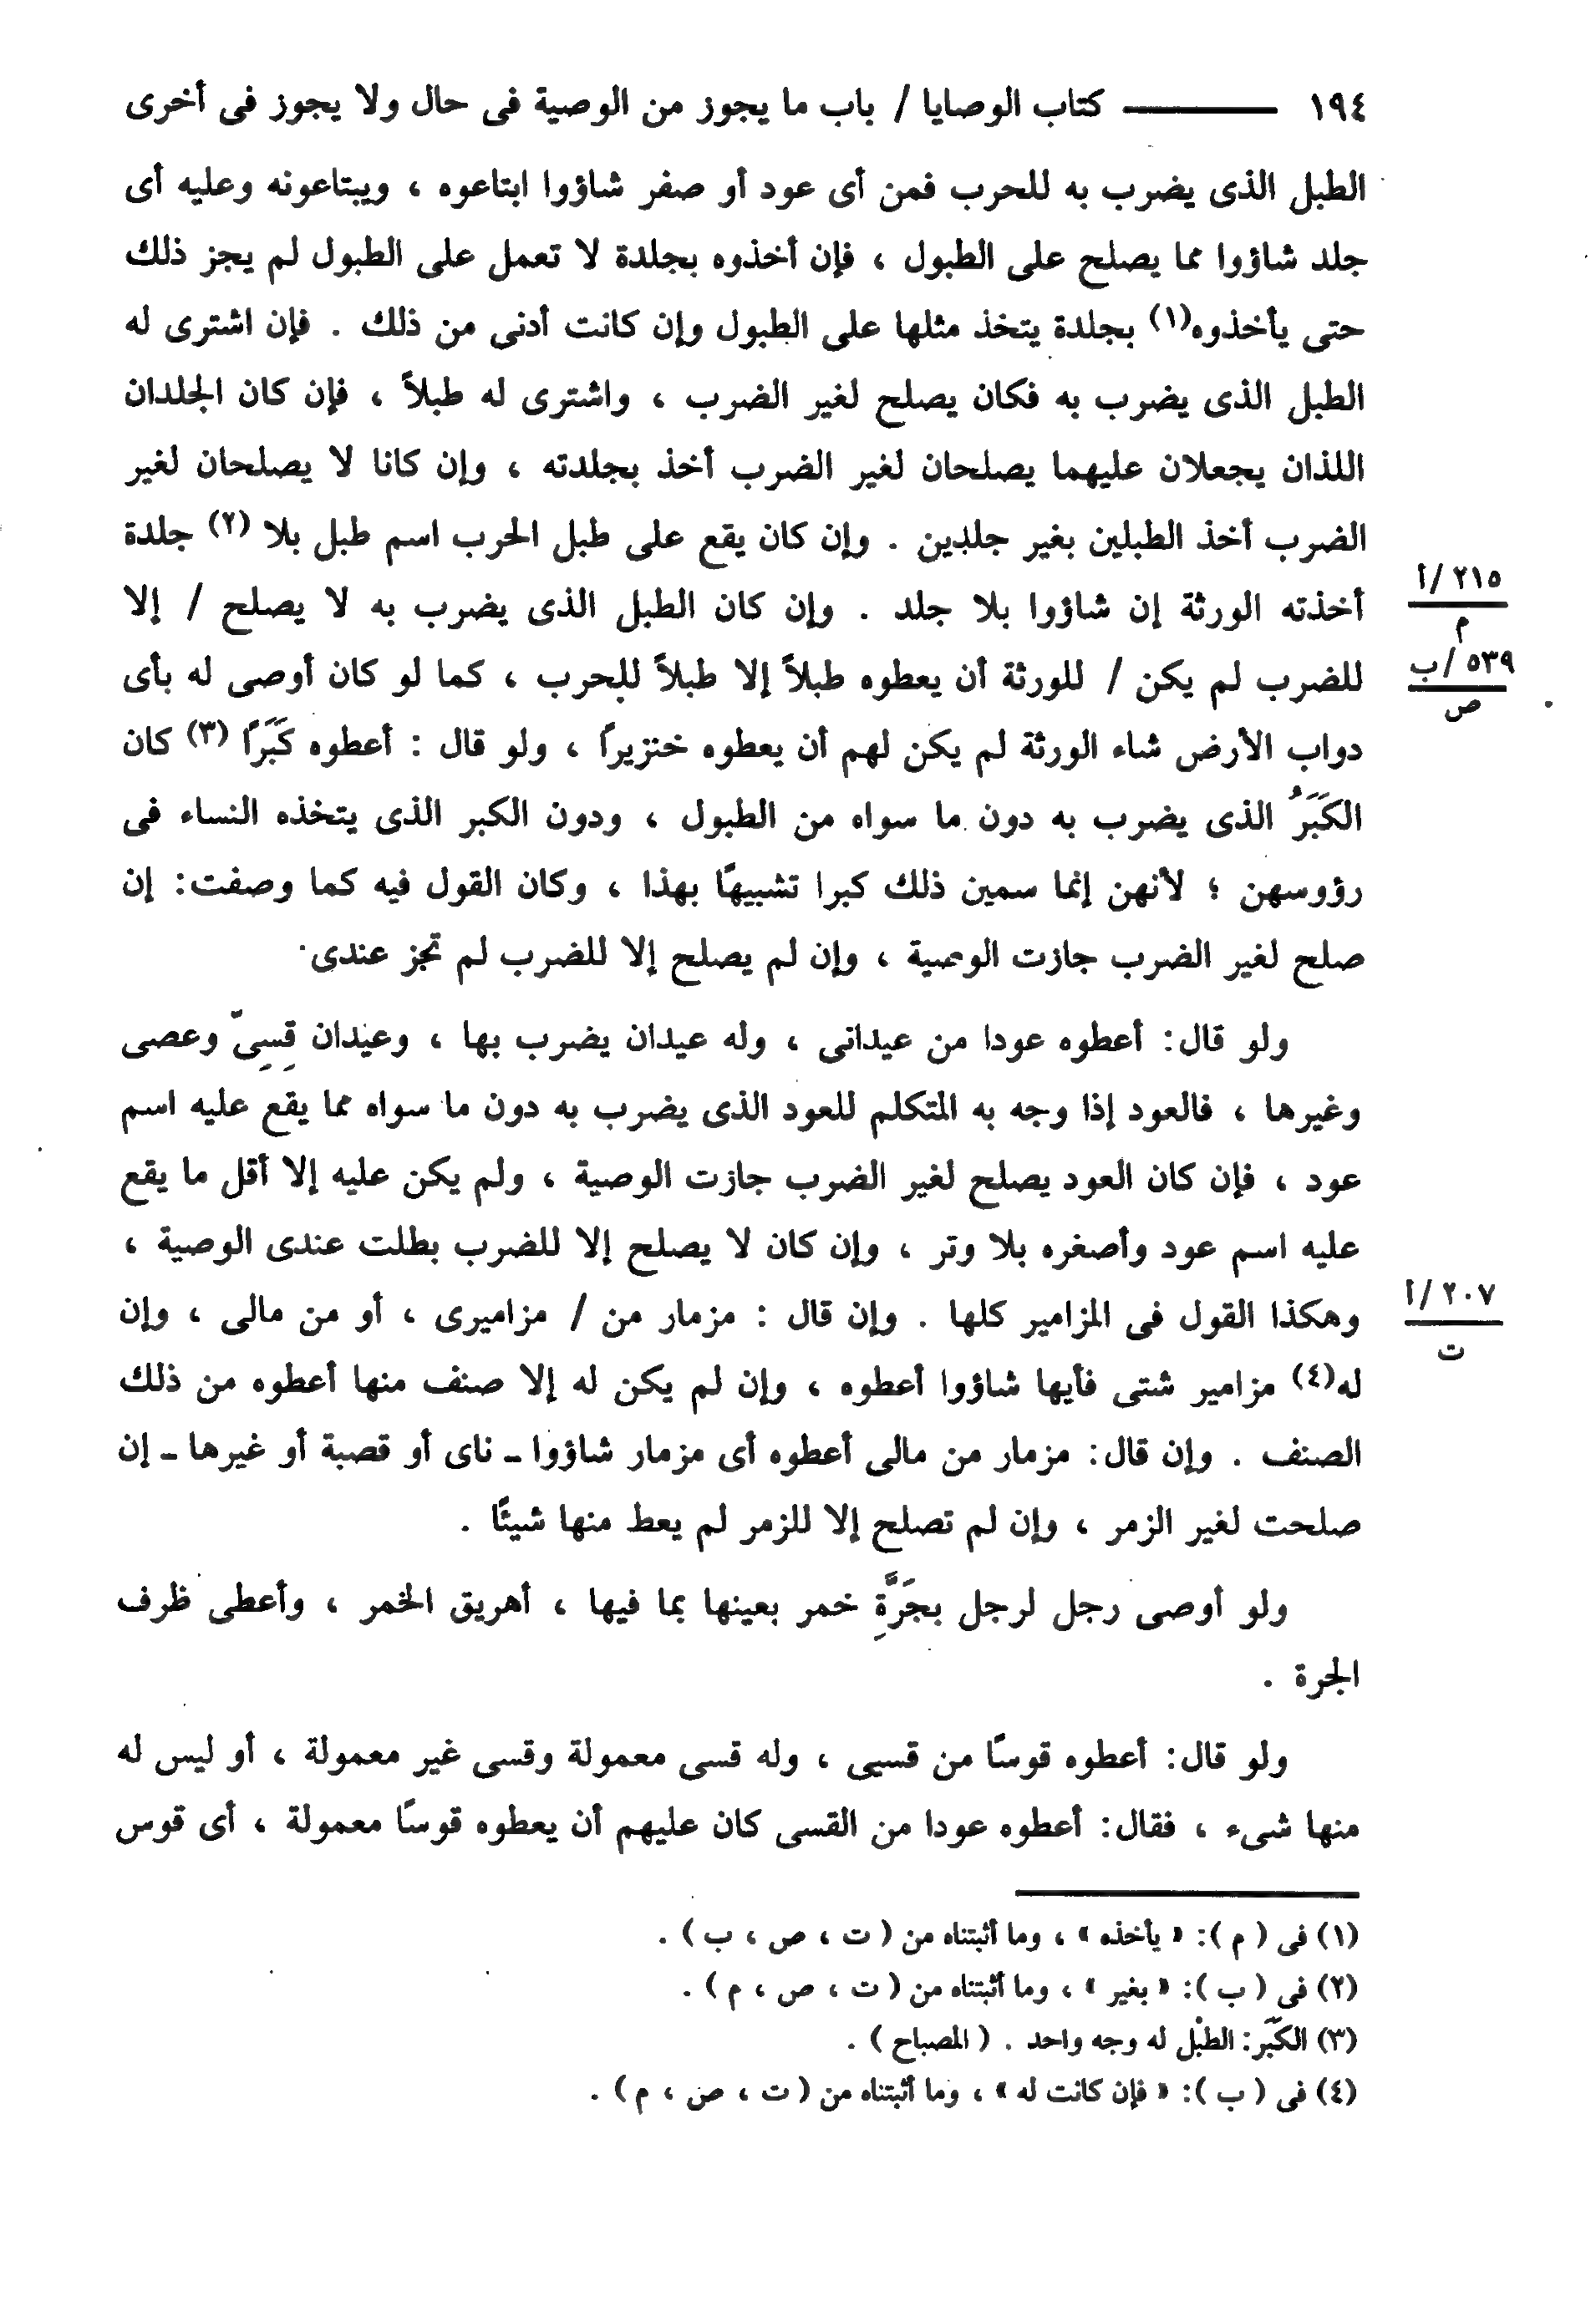 ١٩٤ ——— كتاب الوصايا / باب ما يجوز من الوصية فى حال ولا يجوز فى أخرى
الطبل الذى يضرب به للحرب فمن أى عود أو صفر شاؤوا ابتاعوه ، ويبتاعونه وعليه أى
جلد شاؤوا مما يصلح على الطبول ، فإن أخذوه بجلدة لا تعمل على الطبول لم يجز ذلك
حتى يأخذوه(١) بجلدة يتخذ مثلها على الطبول وإن كانت أدنى من ذلك . فإن اشترى له
الطبل الذى يضرب به فكان يصلح لغير الضرب ، واشترى له طبلاً ، فإن كان الجلدان
اللذان يجعلان عليهما يصلحان لغير الضرب أخذ بجلدته ، وإن كانا لا يصلحان لغير
الضرب أخذ الطبلين بغير جلدين . وإن كان يقع على طبل الحرب اسم طبل بلا (٢) جلدة
أخذته الورثة إن شاؤوا بلا جلد . وإن كان الطبل الذى يضرب به لا يصلح / إلا
٢١٥ /أ
م
للضرب لم يكن / للورثة أن يعطوه طبلاً إلا طبلاً للحرب ، كما لو كان أوصى له بأى
٥٣٩ /ب
ص
دواب الأرض شاء الورثة لم يكن لهم أن يعطوه خنزيراً ، ولو قال : أعطوه كَبَرًا (٣) كان
الكَبَرُ الذى يضرب به دون ما سواه من الطبول ، ودون الكبر الذى يتخذه النساء فى
رؤوسهن ؛ لأنهن إنما سمين ذلك كبرا تشبيهًا بهذا ، وكان القول فيه كما وصفت: إن
صلح لغير الضرب جازت الوصية ، وإن لم يصلح إلا للضرب لم تجز عندى.
ولو قال: أعطوه عودا من عيدانى ، وله عيدان يضرب بها ، وعيدان قِسِىّ وعصى
وغيرها ، فالعود إذا وجه به المتكلم للعود الذى يضرب به دون ما سواه مما يقع عليه اسم
عود ، فإن كان العود يصلح لغير الضرب جازت الوصية ، ولم يكن عليه إلا أقل ما يقع
عليه اسم عود وأصغره بلا وتر ، وإن كان لا يصلح إلا للضرب بطلت عندى الوصية ،
وهكذا القول فى المزامير كلها . وإن قال : مزمار من / مزاميرى ، أو من مالى ، وإن
٢٠٧ /أ
ت
له(٤) مزامير شتى فأيها شاؤوا أعطوه ، وإن لم يكن له إلا صنف منها أعطوه من ذلك
الصنف . وإن قال: مزمار من مالى أعطوه أى مزمار شاؤوا ـ ناى أو قصبة أو غيرها ـ إن
صلحت لغير الزمر ، وإن لم تصلح إلا للزمر لم يعط منها شيئًا .
ولو أوصى رجل لرجل بجَرَّةِ خمر بعينها بما فيها ، أهريق الخمر ، وأعطى ظرف
الجرة .
ولو قال: أعطوه قوسًا من قسيى ، وله قسى معمولة وقسى غير معمولة ، أو ليس له
منها شىء ، فقال: أعطوه عودا من القسى كان عليهم أن يعطوه قوسًا معمولة ، أى قوس
(١) فى ( م ): « يأخذه » ، وما أثبتناه من ( ت ، ص ، ب ) .
(٢) فى ( ب ): « بغير » ، وما أثبتناه من ( ت ، ص ، م ) .
(٣) الكَبَر: الطبْل له وجه واحد . ( المصباح ) .
(٤) فى ( ب ): « فإن كانت له » ، وما أثبتناه من ( ت ، ص ، م ) .